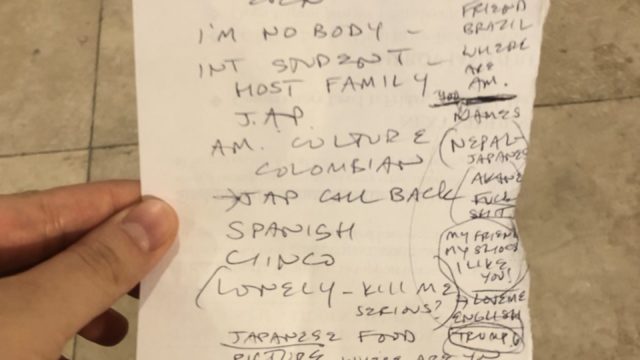 I'M NO BODY -
INT STUDENT -
HOST FAMILY
J.A.P.
AM. CULTURE
COLOMBIAN
→JAP CALL BACK
SPANISH
CINCO
LONELY - KILL ME
SERIOUS?
JAPANESE FOOD
PICTURE WHERE ARE YOU
FRIEND
BRAZIL
WHERE
ARE
AM.
YOU
NAMES
NEPAL-
JAPANESE
AKANE
FUCK
SHIT
MY FRIEND
MY SHOES
I LIKE
YOU!
→ LOVE ME
ENGLISH
TRUMP